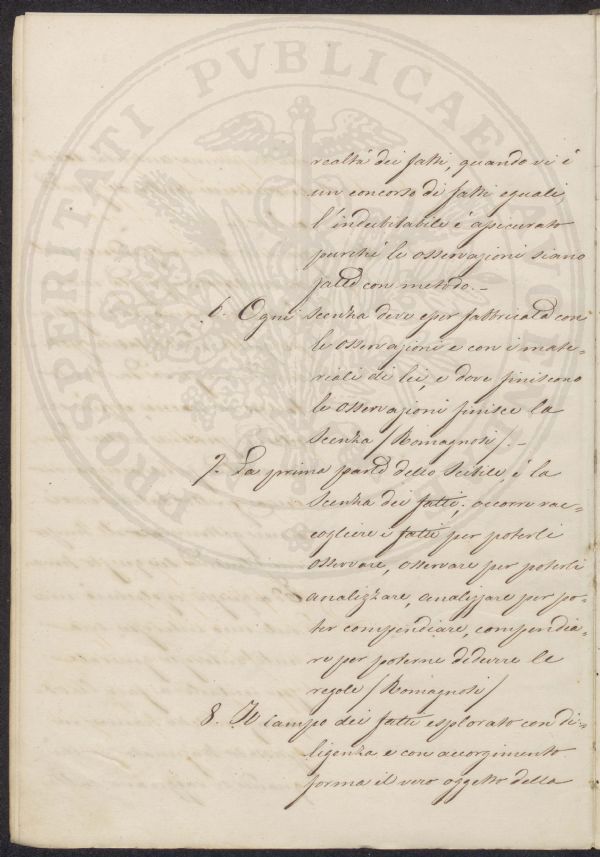 realtà dei fatti, quando vi è
un concorso di fatti eguali,
l'indubitabile è assicurato
purché le osservazioni siano
fatte con metodo. -
6. Ogni scienza deve esser fabbricata con
le osservazioni e con i mate-
riali di lei, e dove finiscono
le osservazioni finisce la
scienza / Romagnosi /. -
7. La prima parte dello Scibile, è la
scienza dei fatti; occorre rac-
cogliere i fatti per poterli
osservare, osservare per poterli
analizzare, analizzare per po-
ter compendiare, compendia-
re per poterne dedurre le
regole / Romagnosi /
8. Il campo dei fatti esplorato con di-
ligenza e con accorgimento
forma il vero oggetto della
PROSPERITATI PVBLICAE